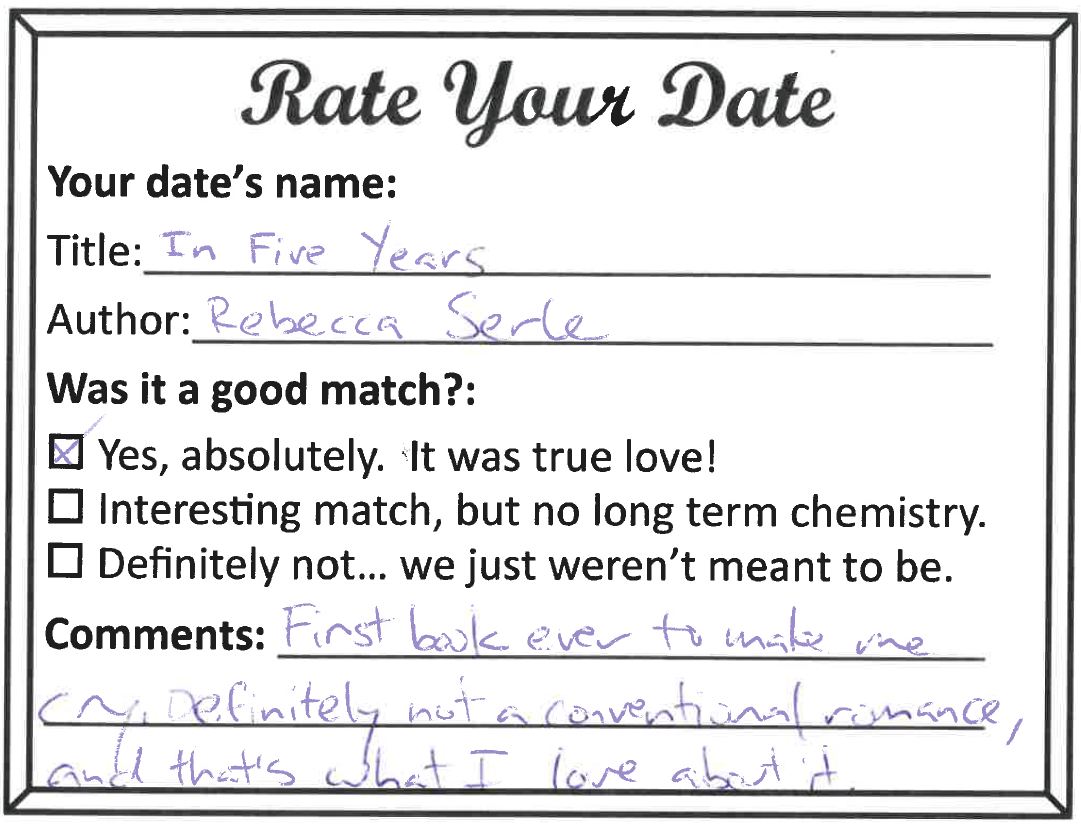 Rate Your Date
Your date's name:
Title: In Five Years
Author: Rebecca Serle
Was it a good match?:
☒ Yes, absolutely. It was true love!
☐ Interesting match, but no long term chemistry.
☐ Definitely not... we just weren't meant to be.
Comments: First book ever to make me
cry. Definitely not a conventional romance,
and that's what I love about it.